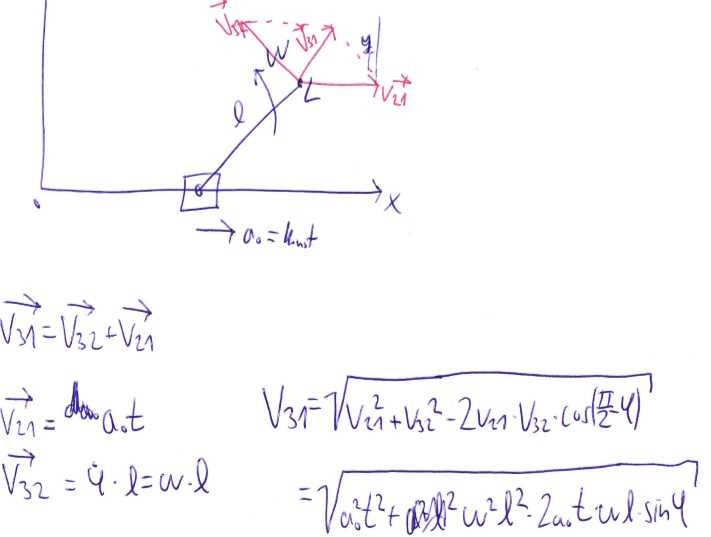 V32 V31 φ
ω
L V21
l
0 x
a₀ = konst
V31 = V32 + V21
V21 = a₀t
V32 = φ̇ · l = ω · l
V31 = √(V21² + V32² - 2V21 · V32 · cos(π/2 - φ))
= √(a₀²t² + ω²l² - 2a₀t · ωl · sinφ)